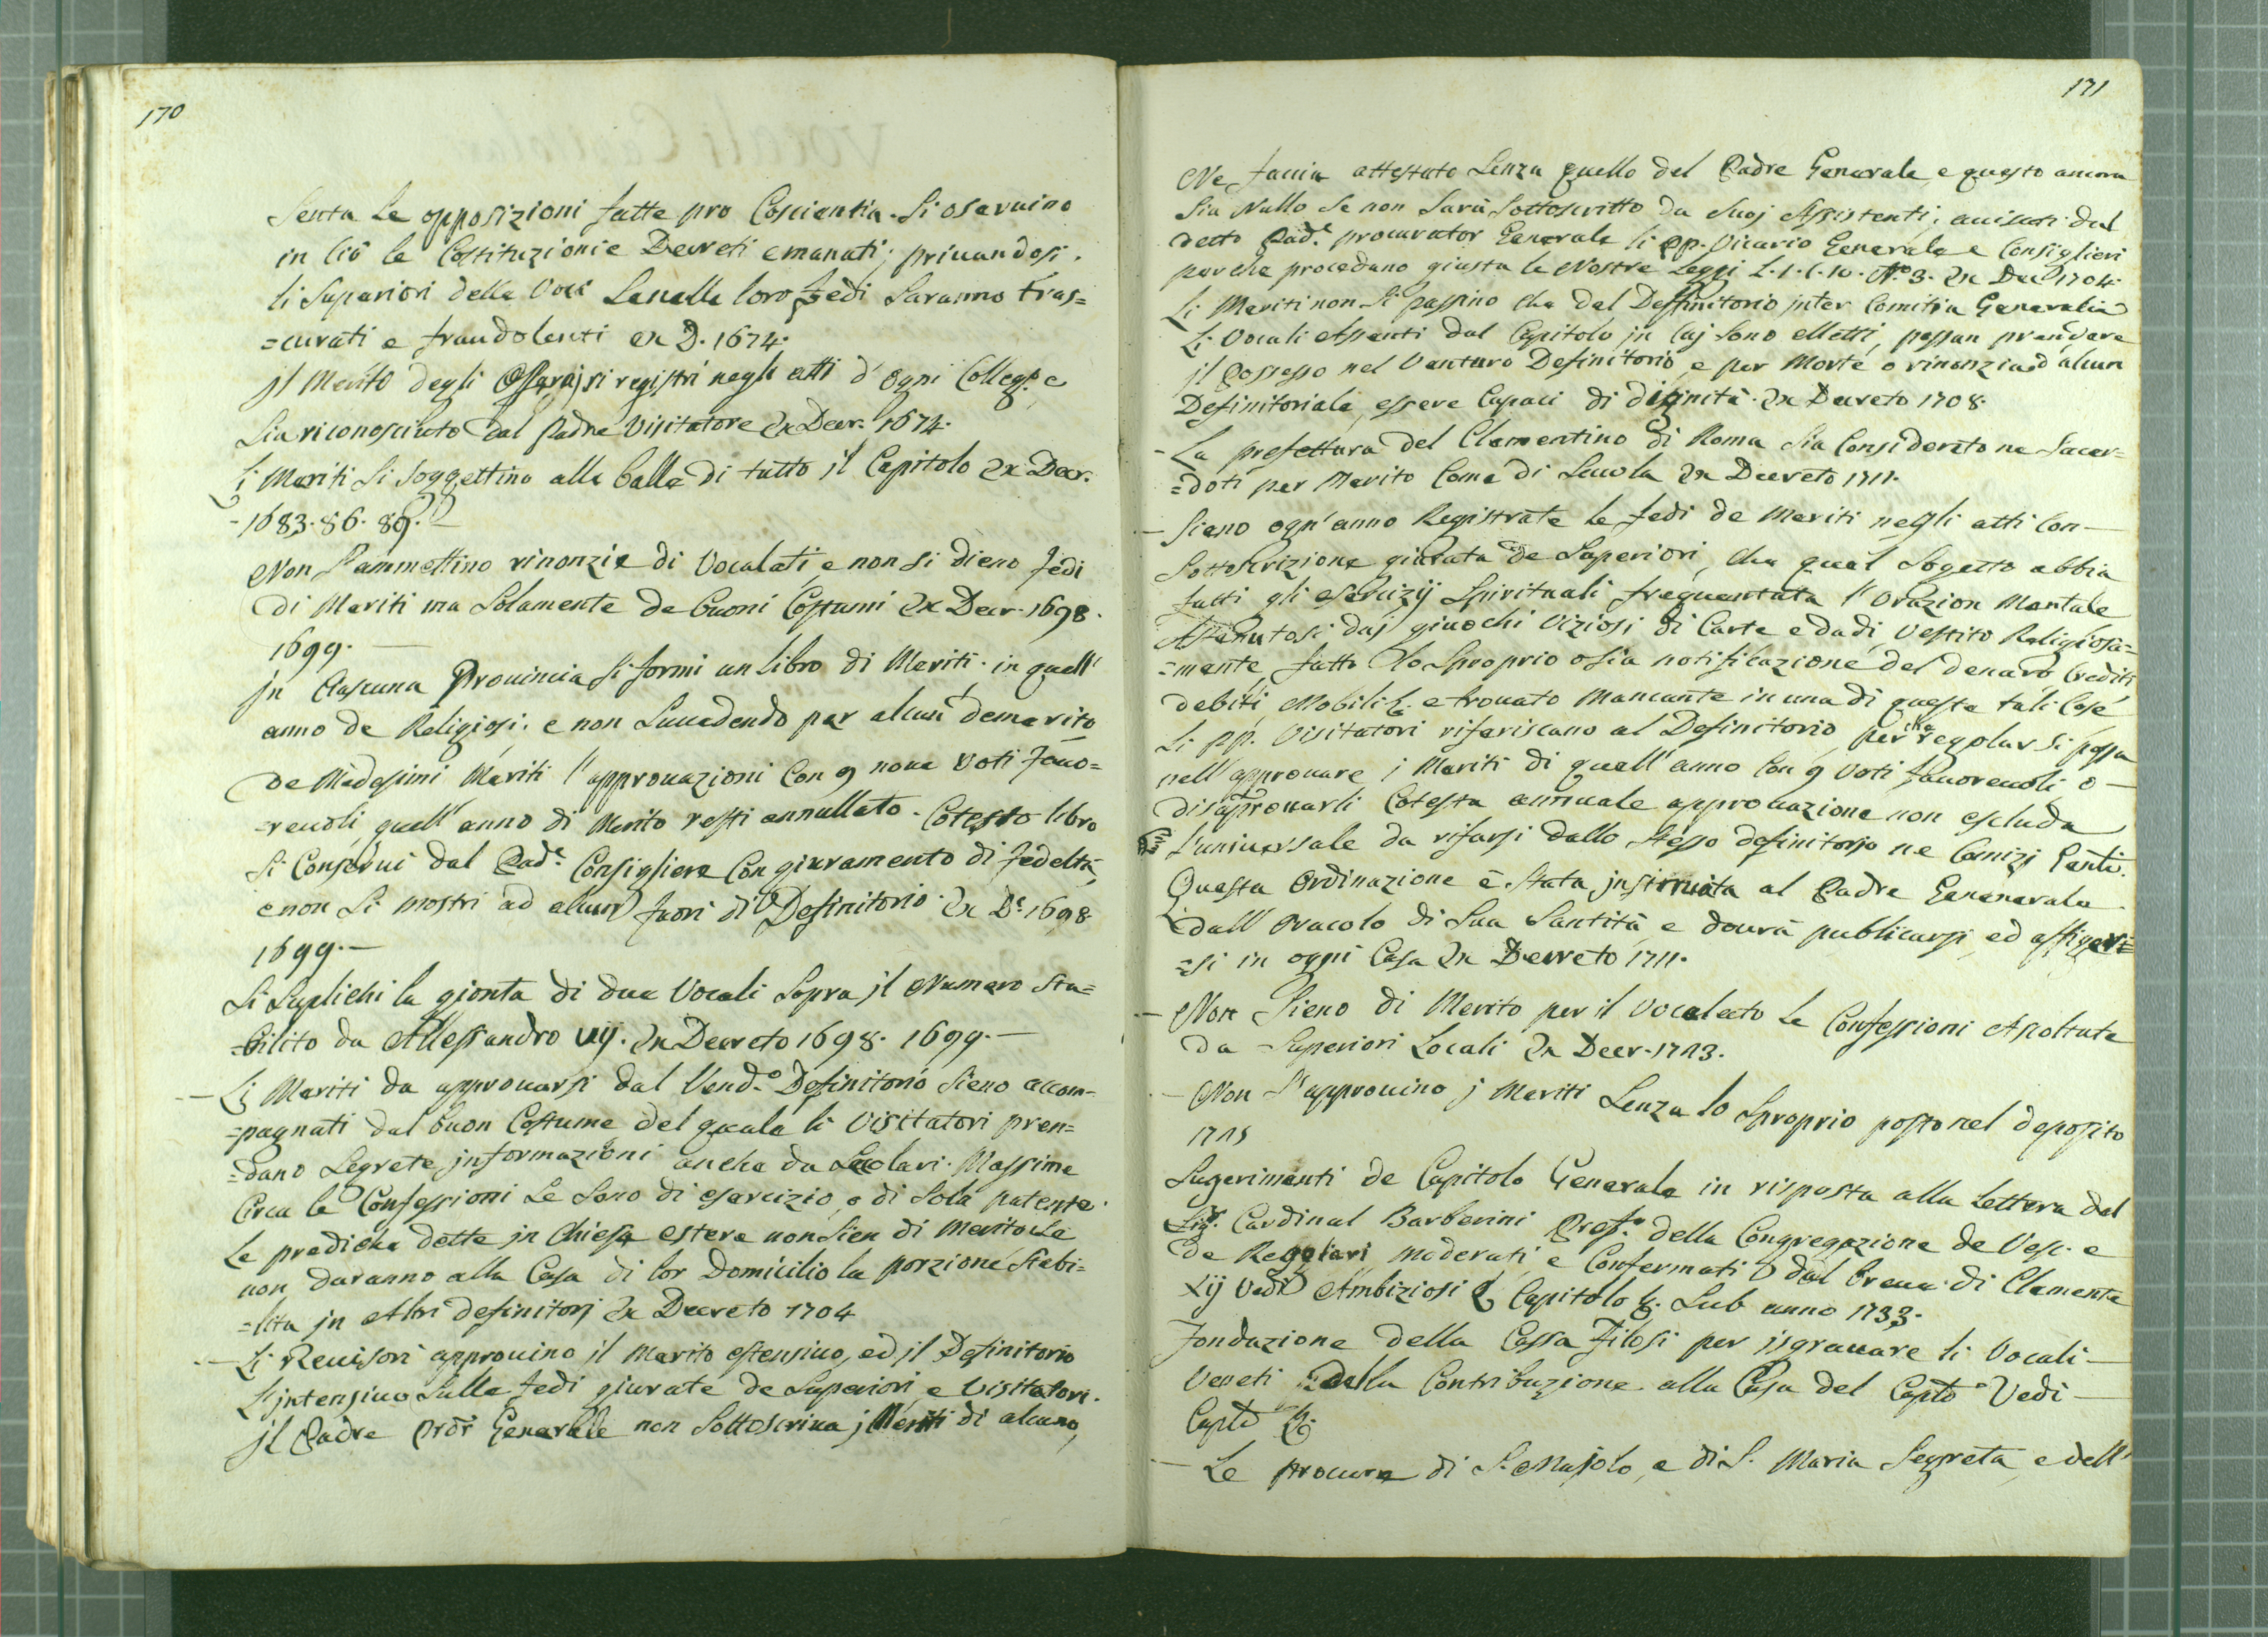 170
senta le opposizioni fatte pro Coscientia. Si oseruino
in ciò le Costituzioni e Decreti emanati; priuandosi.
li Superiori della Voce se nelle loro fedi saranno tras=
=curati e fraudolenti ex D. 1674.
jl Merito degli si registri negli atti d'ogni Colleg.o e
sia riconosciuto dal Padre Visitatore Ex Decr. 1674.
Li Meriti si soggettino alle balle di tutto jl Capitolo Ex Decr.
-1683. 86. 89.
Non s'ammettino rinonzie di Vocalati, e non si dieno fedi
di Meriti ma solamente de buoni Costumi Ex Decr. 1698.
1699.—
jn Ciascuna Prouincia si formi un libro di Meriti. in quell'
anno de Religiosi. e non succedendo per alcun demerito
de Medesimi Meriti l'approuazioni con 9 noue Voti fauo=
=reuoli, quell'anno di Merito resti annullato. Cotesto libro
si Conserui dal Pad.e Consigliere Con giuramento di fedeltà,
e non si mostri ad alcun fuori di Definitorio. Ex D.e 1698.
1699.—
Si Suplichi la gionta di due Vocali sopra jl Numero sta=
=bilito da Allessandro VII. Ex Decreto 1698. 1699.—
— Li Meriti da approuarsi dal Vend.o Definitorio sieno accom=
=pagnati dal buon Costume del quale li Visitatori pren=
=dano segrete jnformazioni anche da Secolari. Massime
Circa le Confessioni se sono di esercizio, o di sola patente.
Le prediche dette jn Chiese estere non sien di Merito se
non daranno alla Casa di lor Domicilio la porzione stabi=
=lita jn Altri definitorj Ex Decreto 1704
— Li Reuisori approuino jl Merito estensiuo, ed jl Definitorio
l'jntensiuo sulle fedi giurate de Superiori e Visitatori.
jl Padre Pror Generale non sottoscriua j Meriti di alcuno,
171
Ne faccia attestato senza quello del Padre Generale, e questo ancora
sia Nullo se non sarà sottoscritto da suoj Assistenti; auisati dal
detto Pad.e procurator Generale li PP. Vicario Generale e Consiglieri
perche procedano giusta le Nostre Leggi L.1. C.10. N.o 3. Ex Dec. 1704.
Li Meriti non si passino cha dal Deffinitorio jnter Comitia Generalia
Li Vocali Assenti dal Capitolo jn Cuj sono elletti, possan prendere
jl Possesso nel Venturo Definitorio, e per Morte o rinonzia d'alcun
Definitoriale, essere Capaci di dignità. Ex Decreto 1708.
- La prefettura del Clementino di Roma sia Considerato ne Sacer=
=doti per Merito Come di Scuola Ex Decreto 1711.
— Sieno ogn'anno Registrate le fedi de Meriti negli atti Con—
sottoscrizione giurata de Superiori, che quel Sogetto abbia
fatti gli esercizij Spirituali frequentata l'Orazion Mentale
Astenutosi daj giuochi Viziosi di Carte e dadi, Vestito Religiosa=
=mente, fatto lo Sproprio o sia notificazione del denaro Crediti
debiti, Mobili &. e trouato Mancante in una di queste tali Cose
Li PP. Visitatori riferiscano al Definitorio perche regolar si possa
nell'approuare j Meriti di quell'anno Con 9 Voti fauoreuoli, o—
disaprouarli Cotesta annuale approuazione non escluda
l'uniuersale da rifarsi dallo stesso definitorio ne Comizj Genli.
Questa Ordinazione è stata jnsinuata al Padre Genenerale
dall'Oracolo di Sua Santità, e dourà publicarsi, ed affigger=
=si in ogni Casa Ex Decreto 1711.
— Non sieno di Merito per il Vocalato le Confessioni Ascoltate
da Superiori Locali Ex Decr. 1713.
— Non s'approuino j Meriti senza lo Sproprio posto nel deposito
1715
Sugerimenti de Capitolo Generale in risposta alla Lettera del
Sig.r Cardinal Barberini Pref.o della Congregazione de Vesc. e
de Reggolari moderati, e Confermati dal breue di Clemente
XII Vedi Ambiziosi & Capitolo &. sub anno 1733.
Fondazione della Cassa Filosi per isgrauare li Vocali—
Veneti dalla Contribuzione alla Casa del Capto. Vedi—
Capto &.
— Le procure di S. Majolo, e di S. Maria Segreta, e dell'